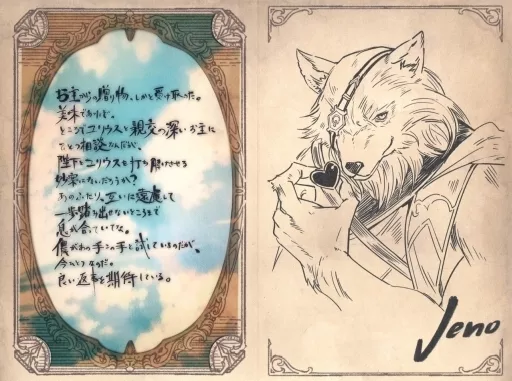 お主からの贈り物、しかと受け取った。
美味であったぞ。
ところでユリウスと親交の深いお主に
ひとつ相談なんだが、
陛下とユリウスを打ち解けさせる
妙案はないだろうか?
あのふたり、互いに遠慮して
一歩踏み出せないところまで
息が合っていてな。
僕があの手この手と試しているのだが、
今ひとつなのだ。
良い返事を期待している。
Jeno